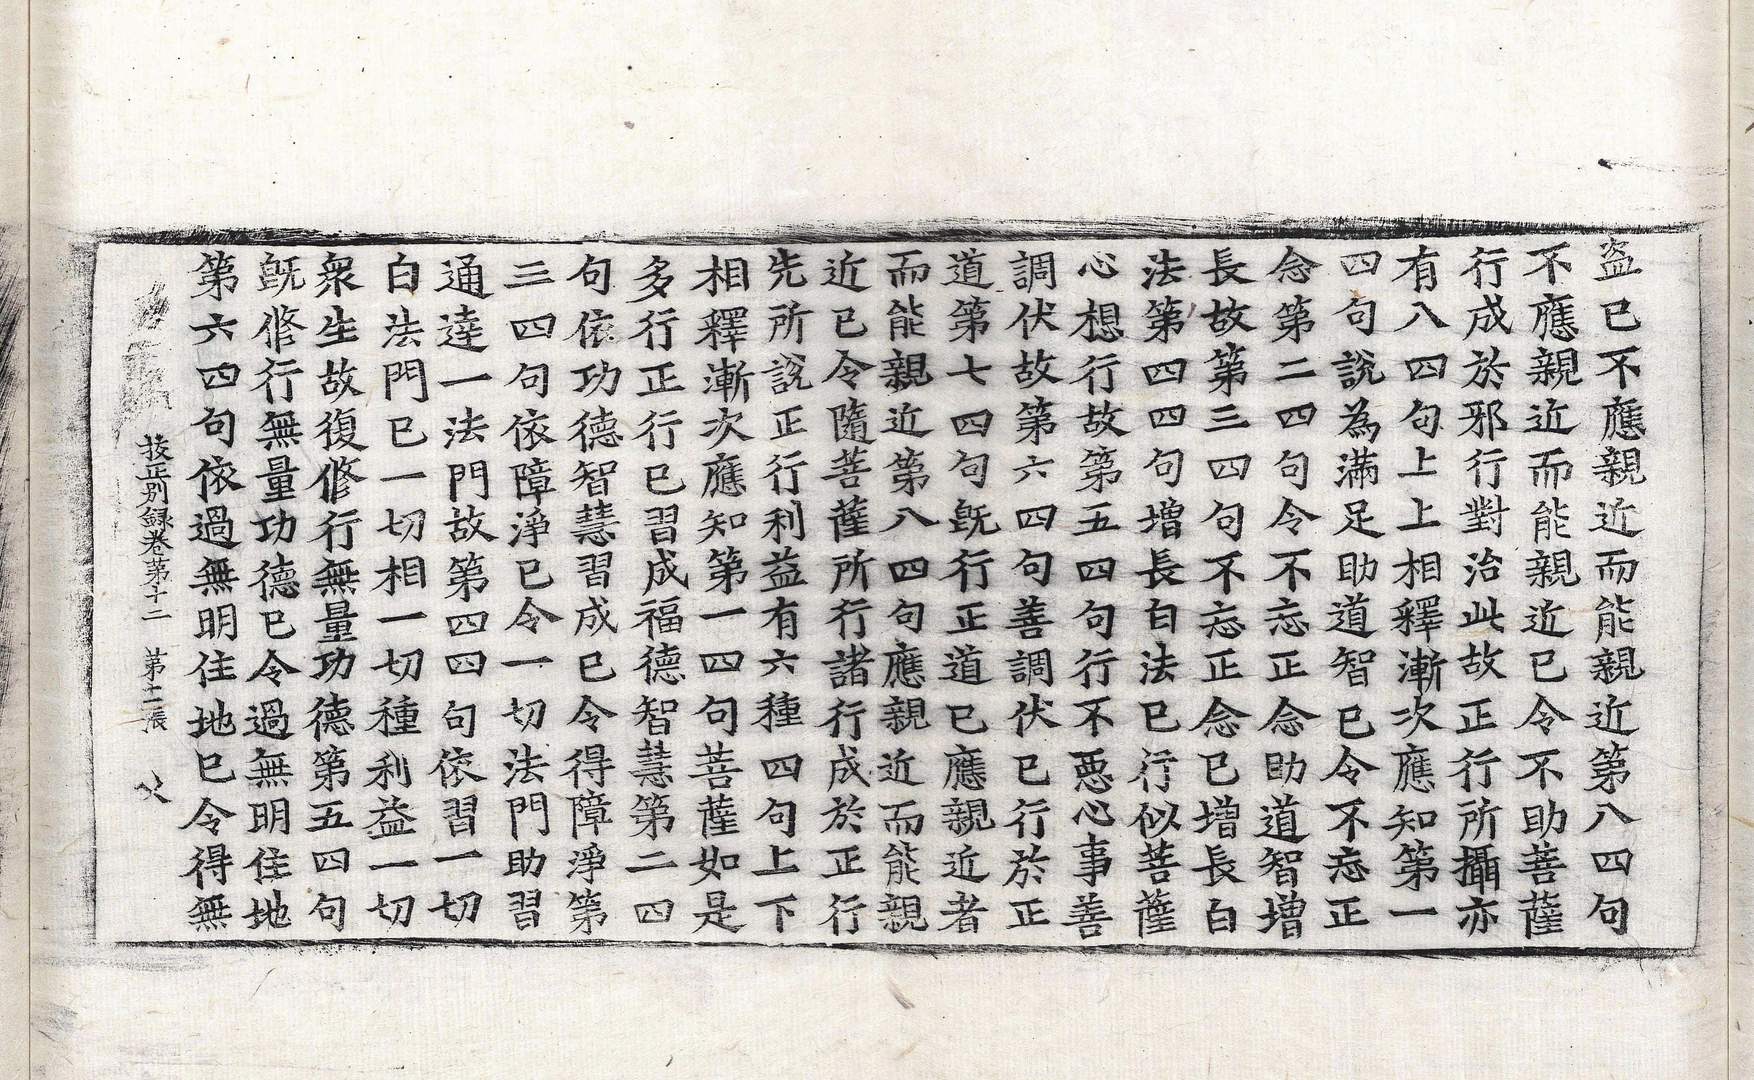 盗已不應親近而能親近第八四句
不應親近而能親近已令不助菩薩
行成於邪行對治此故正行所攝亦
有八四句上上相釋漸次應知第一
四句說為滿足助道智已令不忘正
念第二四句令不忘正念助道智增
長故第三四句不忘正念已增長白
法第四四句增長白法已行似菩薩
心想行故第五四句行不惡心事善
調伏故第六四句善調伏已行於正
道第七四句旣行正道已應親近者
而能親近第八四句應親近而能親
近已令隨菩薩所行諸行成於正行
先所說正行利益有六種四句上下
相釋漸次應知第一四句菩薩如是
多行正行已習成福德智慧第二四
句依功德智慧習成已令得障淨第
三四句依障淨已令一切法門助習
通達一法門故第四四句依習一切
白法門已一切相一切種利益一切
衆生故復修行無量功德第五四句
旣修行無量功德已令過無明住地
第六四句依過無明住地已令得無
挍正別録卷第十二 第十二張 父